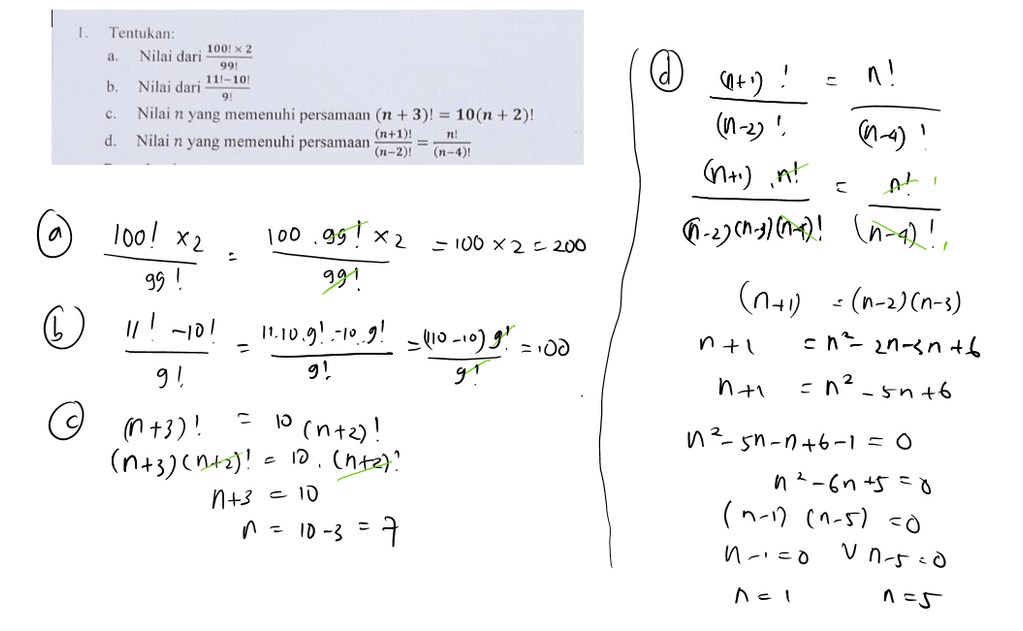 1. Tentukan:
a. Nilai dari \frac{100! × 2}{99!}
b. Nilai dari \frac{11!−10!}{9!}
c. Nilai n yang memenuhi persamaan (n + 3)! = 10(n + 2)!
d. Nilai n yang memenuhi persamaan \frac{(n+1)!}{(n−2)!} = \frac{n!}{(n−4)!}
(a) \frac{100! ×2}{99!} = \frac{100 . 99! ×2}{99!} = 100 × 2 = 200
(b) \frac{11! −10!}{9!} = \frac{11.10.9! −10.9!}{9!} = \frac{(110−10) 9!}{9!} = 100
(c) (n+3)! = 10 (n+2)!
(n+3)(n+2)! = 10 . (n+2)!
n+3 = 10
n = 10−3 = 7
(d) \frac{(n+1)!}{(n−2)!} = \frac{n!}{(n−4)!}
\frac{(n+1) . n!}{(n−2)(n−3)(n−4)!} = \frac{n!}{(n−4)!}
(n+1) = (n−2)(n−3)
n+1 = n² − 2n−3n+6
n+1 = n² − 5n+6
n² − 5n−n+6−1 = 0
n² −6n+5 = 0
(n−1) (n−5) = 0
n−1=0 ∨ n−5=0
n=1 n=5